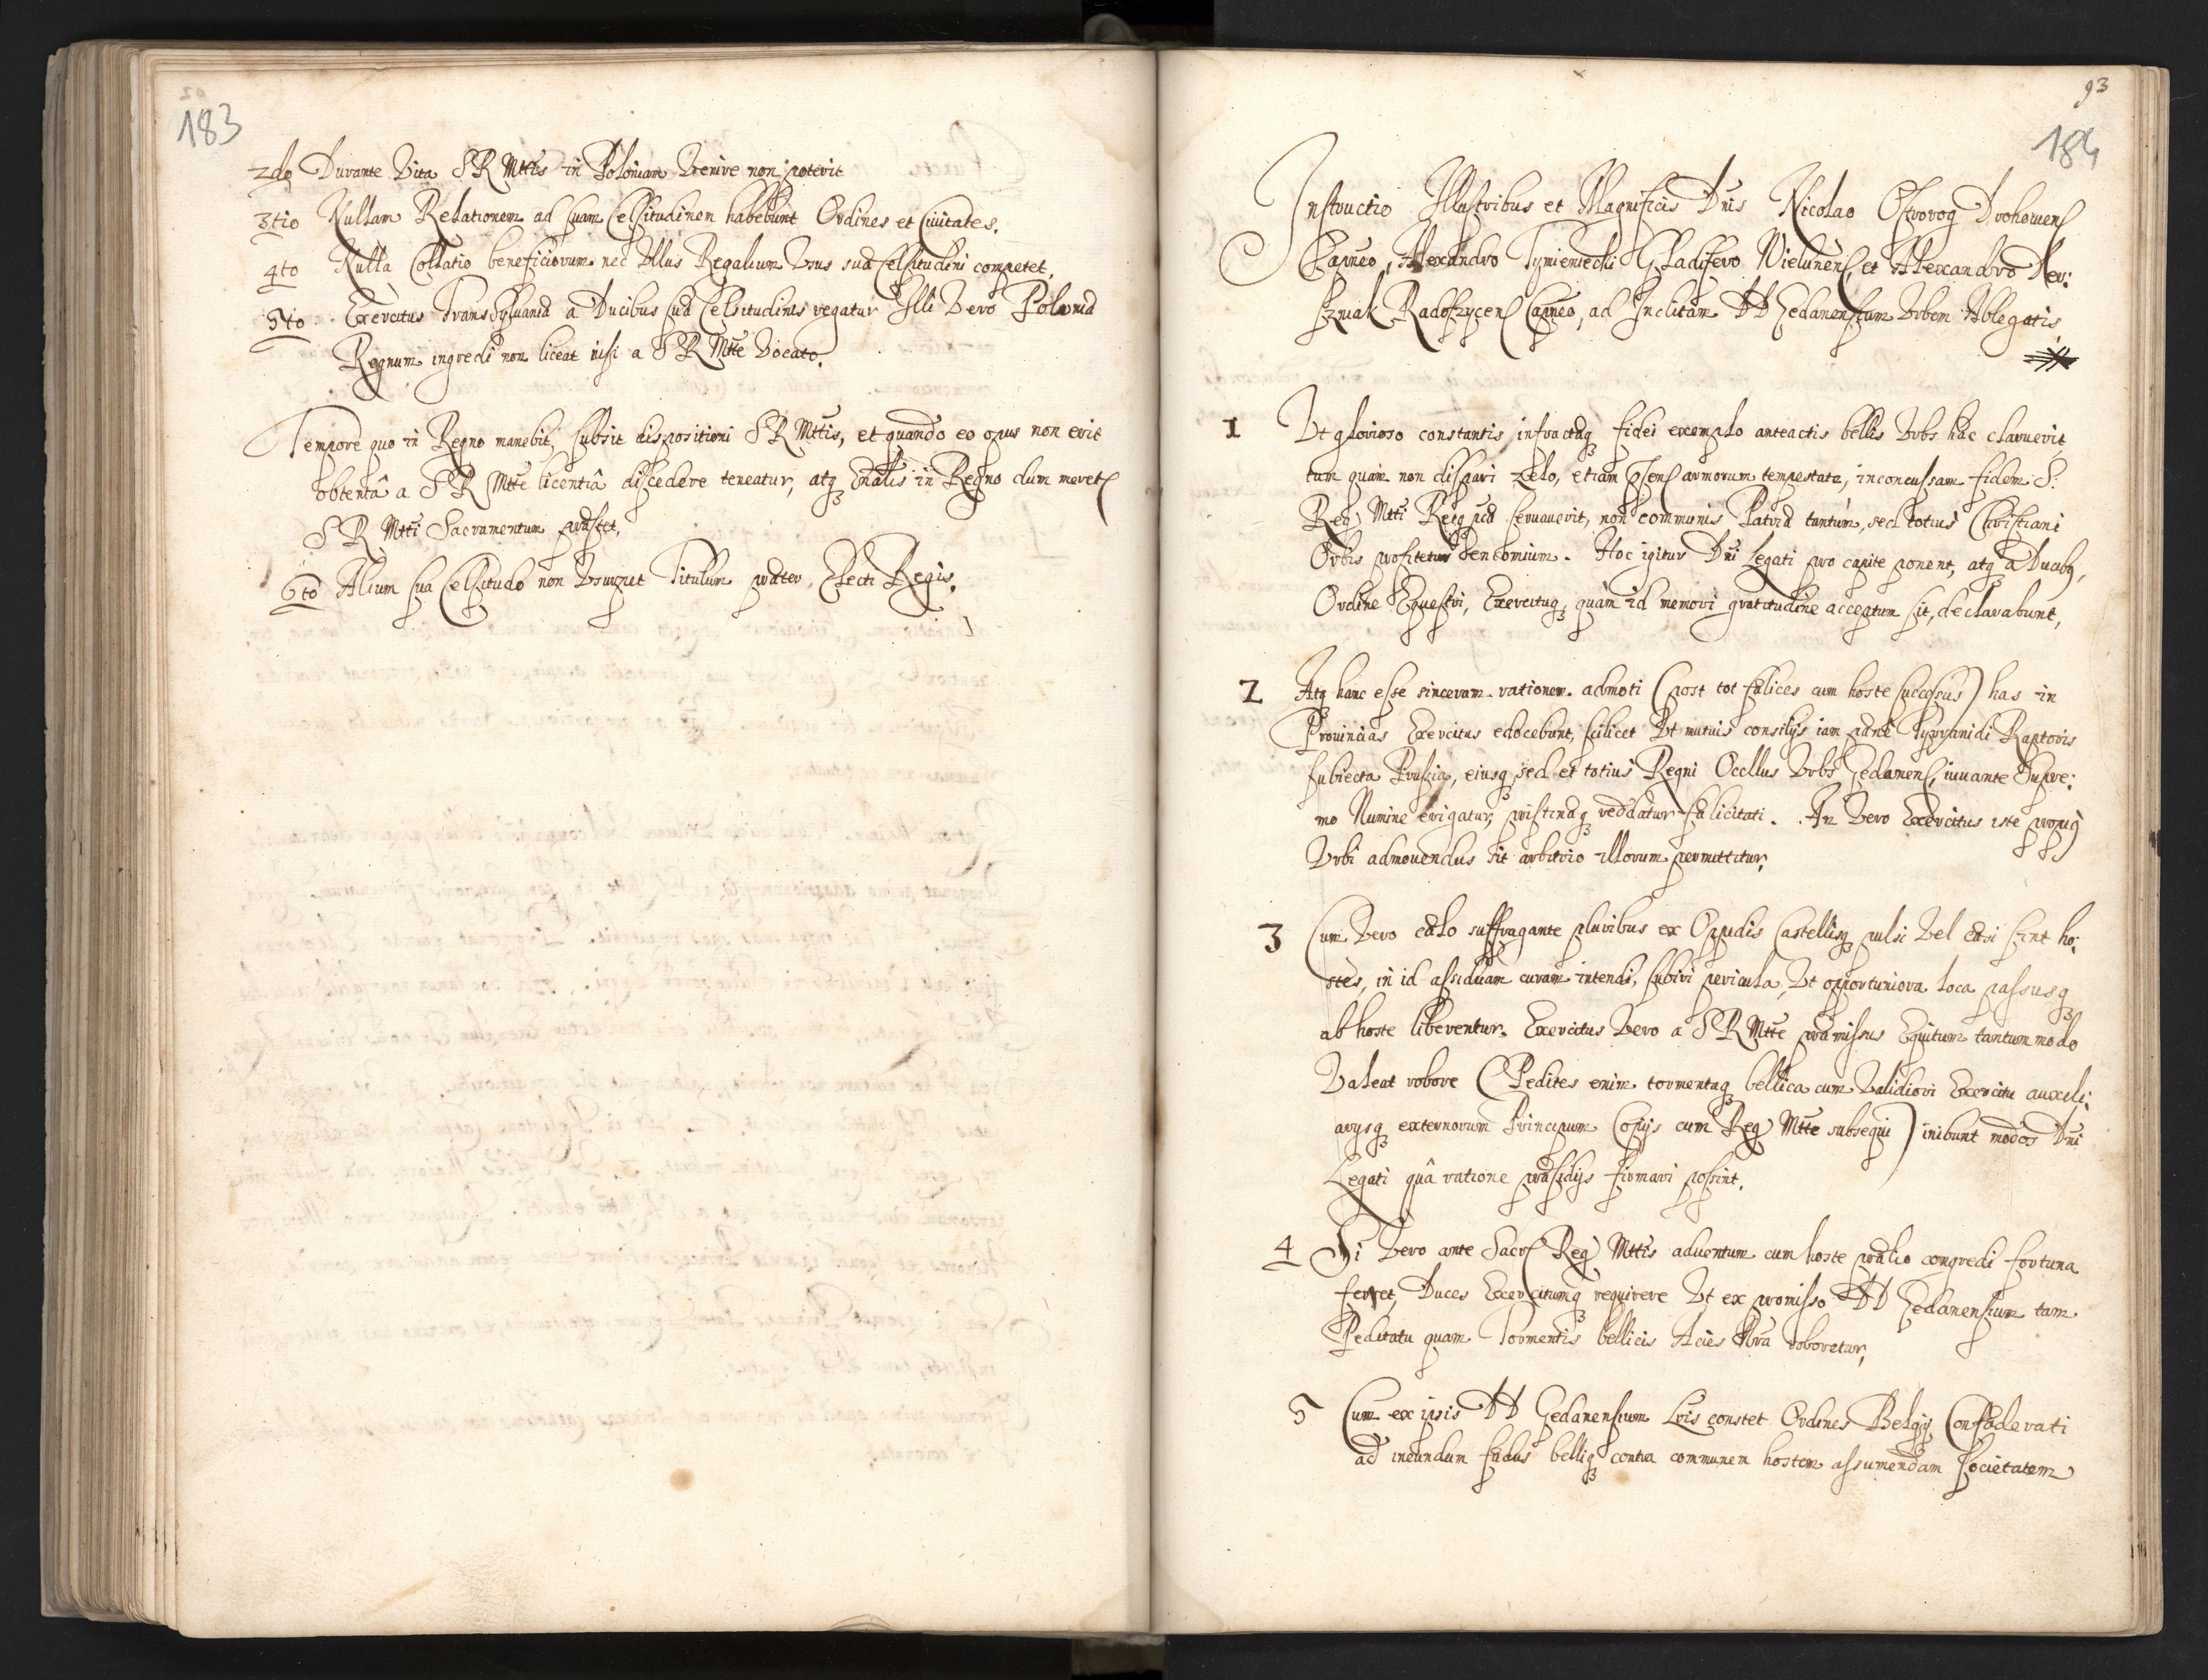 183
2do Durante Vita SR Mttis in Poloniam Venire non poterit
3tio Nullam Relationem ad suam Celsitudinem habebunt Ordines et Ciuitates.
4to Nulla Collatio beneficiorum nec Vllus Regalium Vsus suæ Celsitudini competet.
5to Exercitus Transylvaniæ a Ducibus suæ Celsitudinis regatur Illi Vero Poloniæ
Regnum ingredi non liceat nisi a SR Mtte Vocato.
Tempore quo in Regno manebit, subsit dispositioni SR Mttis, et quando eo opus non erit
obtentâ a SR Mtte licentiâ discedere teneatur, atq in Regno dum
SR Mtti Sacramentum præstet.
6to Alium sua Celsitudo non Vsurpet Titulum præter, Electi Regis.
93
184
Instructio Illustribus et Magnificis Dnis Nicolao Ostrorog Drohouiens
Capneo, Alexandro Tymieniecki Gladifero Vielunens et Alexandro Ker:
szniak Radoszycens Capneo, ad Inclitam DD Gedanensium Vrbem Ablegatis
1 Vt glorioso constantis infractæq fidei exemplo anteactis bellis Vrbs hæc claruerit,
tum quàm non dispari zelo, etiam Psens armorum tempestate, inconcussam fidem S.
Reg Mtti Reiq pcæ seruauerit, non communis Patriæ tantùm, sed totius Christiani
Orbis profitetur encomium. Hoc igitur Dni Legati pro capite ponent, atq à Ducibq,
Ordine Equestri, Exercituq, quàm id memori gratitudine acceptum sit, declarabunt,
2 Atq hanc esse sinceram rationem admoti (post tot fælices cum hoste successus) has in
Prouincias Exercitus edocebunt, scilicet Vt mutuis consilijs iam pænè Tyrannidi Raptoris
subiecta Prussia, eiusq sed et totius Regni Ocellus Vrbs Gedanens, iuuante Supre:
mo Numine erigatur, pristinæq reddatur fælicitati. An Vero Exercitus iste propiq
Vrbi admouendus sit arbitrio illorum permittitur.
3 Cum Vero cælo suffragante pluribus ex Oppidis Castellisq pulsi Vel cæsi sint ho:
stes, in id assiduam curam intendi, subiri pericula, Vt opportuniora loca passusq
ab hoste liberentur. Exercitus Vero a SR Mtte præmissus Equitum tantummodo
Valeat robore (Pedites enim tormentaq bellica cum Validiori Exercitu auxili:
arysq externorum Principum Copijs cum Reg Mtte subsequi) inibunt modos Dni
Legati quâ ratione præsidijs firmari possint.
4 Si Vero ante Sacr Reg Mttis aduentum cum hoste prælio congredi fortuna
ferret, Duces Exercitumq requirere Vt ex promisso DD Gedanensium tam
Peditatu quam Tormentis bellicis Acies Nra roboretur,
5 Cum ex ipsis DD Gedanensium Lris constet Ordines Belgij Confæderati
ad ineundum fædus belliq contra communem hostem assumendam Societatem